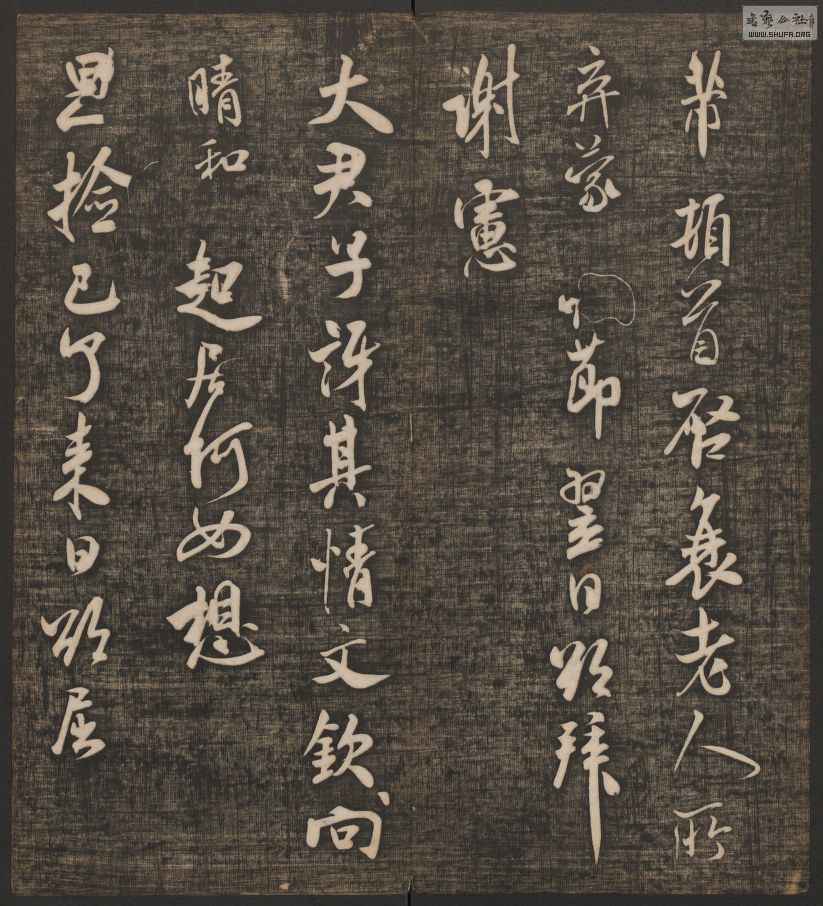 芾頓首啓衰老人所
弃蒙節翌日欲拜
謝憲
大君子訝其情文欽向
晴和起居何如想
撿已了來日欲屈
書藝公社
WWW.SHUFA.ORG